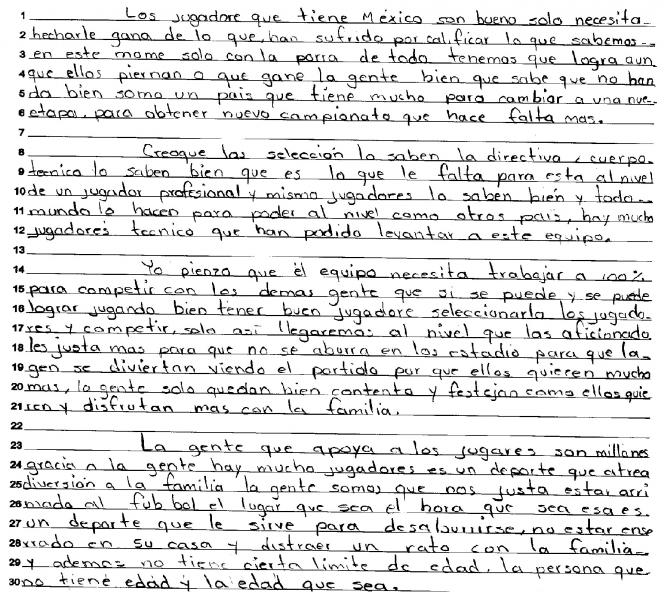 1 Los jugadore que tiene México son bueno solo necesita-
2 hecharle gana de lo que, han sufrido por calificar lo que sabemos--
3 en este mome solo con la porra de todo tenemos que logra aun
4 que ellos piernan o que gane la gente bien que sabe que no han
5 da bien somo un pais que tiene mucho para cambiar a una nue-
6 etapa, para obtener nuevo campionato que hace falta mas.
7
8 Creoque las selección lo saben la directiva, cuerpo-
9 tecnico lo saben bien que es lo que le falta para esta al nivel
10 de un jugador profesional y mismo jugadores lo saben bién y todo--
11 mundo lo hacen para poder al nivel como otros pais, hay mucho
12 jugadores tecnico que han podido levantar a este equipo.
13
14 Yo pienzo que él equipo necesita trabajar a 100%
15 para competir con los demas gente que si se puede y se puede
16 lograr jugando bien tener buen jugadore seleccionarla los jugado-
17 res y competir, solo asi llegaremos al nivel que las aficionado
18 les justa mas para que no se aburra en los estadio para que la-
19 gen se diviertan viendo el partido por que ellos quiecen mucho
20 mas, la gente solo quedan bien contenta y festejan como ellos quie
21 ren y disfrutan mas con la familia.
22
23 La gente que apoya a los jugares son millones
24 gracia a la gente hay mucho jugadores es un deporte que atrea
25 diversión a la familia la gente somos que nos justa estar arri
26 mado al fub bol el lugar que sea el hora que sea esa es.
27 un deporte que le sirve para desaburrirse, no estar ence
28 rrado en su casa y distraer un rato con la familia--
29 y ademas no tiene cierta limite de edad, la persona que
30 no tiene edad y la edad que sea.